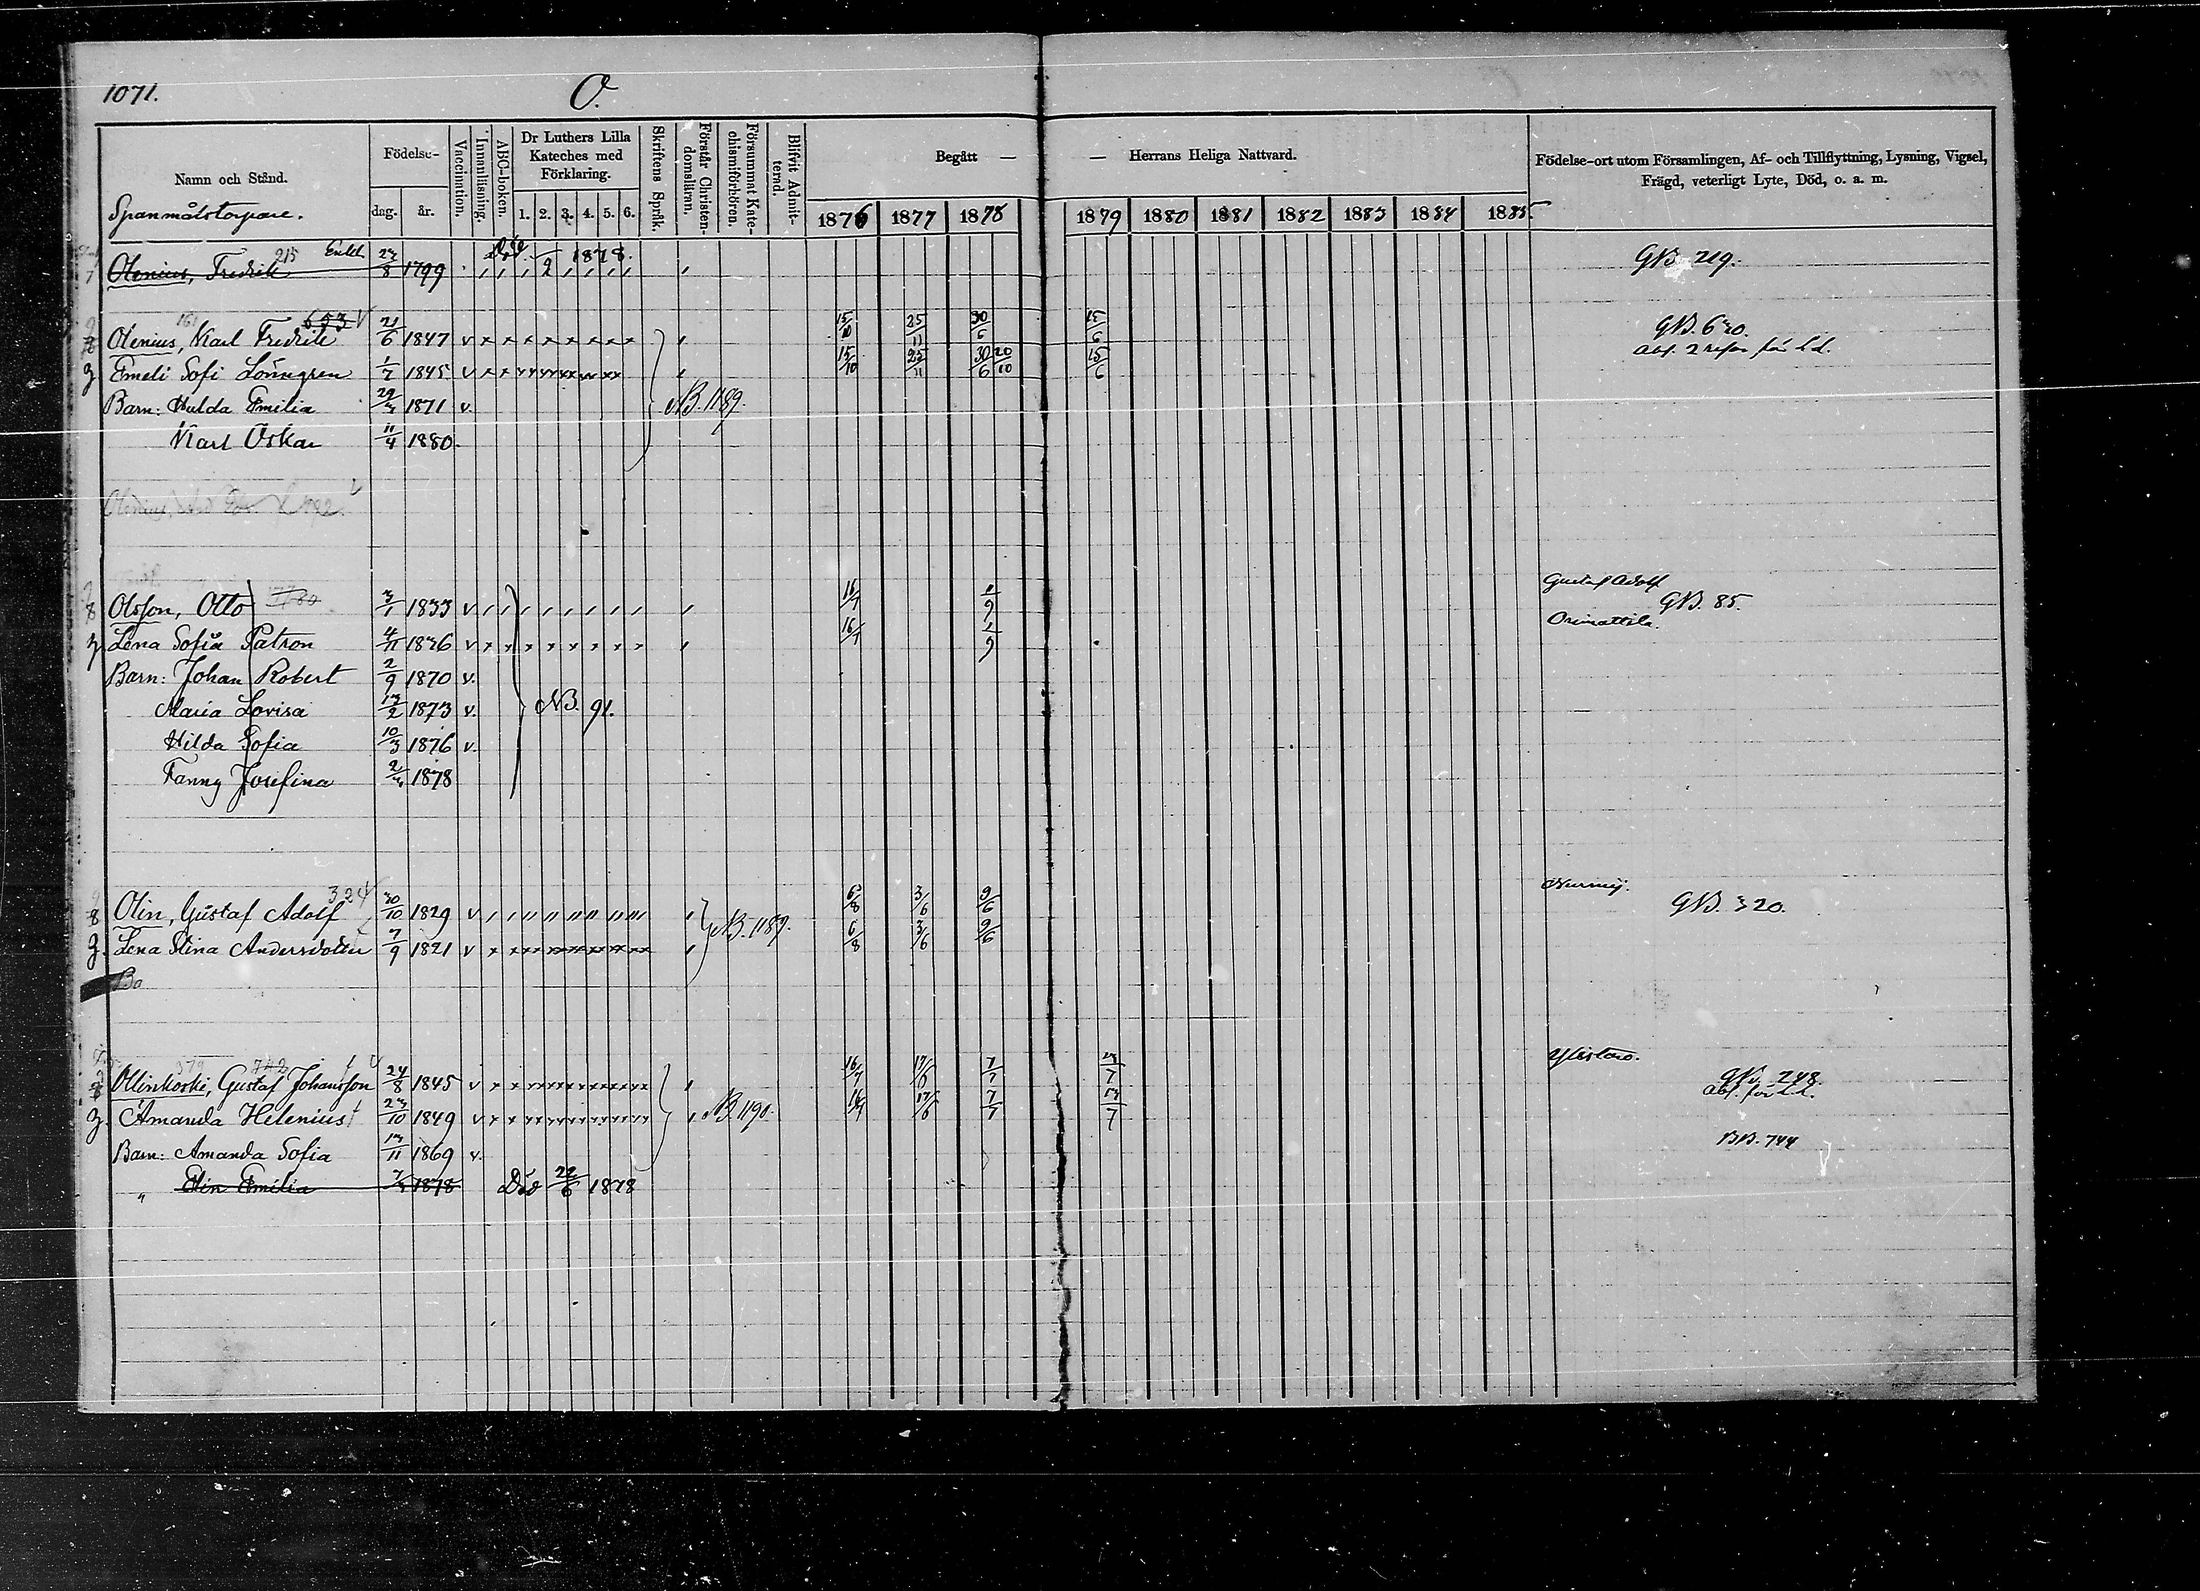 1071.
O.
Namn och Stånd.
Spanmålstorpare.
Födelse-
dag.
år.
Vaccination.
Innanläsning.
ABC-boken.
Dr Luthers Lilla
Kateches med
Förklaring.
1. 2. 3. 4. 5. 6.
Skriftens Språk.
Förstår Christen-
domsläran.
Försummat Kate-
chismiförhören.
Blifvit Admit-
terad.
Begått —
— Herrans Heliga Nattvard.
1876 1877 1878 1879 1880 1881 1882 1883 1884 1885
Födelse-ort utom Församlingen, Af- och Tillflyttning, Lysning, Vigsel,
Frägd, veterligt Lyte, Död, o. a. m.
215 Enkl.
Olenius, Fredrik 1799 Död 1878. GB 219.
161 653
Olenius, Karl Fredrik 21/6 1847 v 15/10 25/11 30/6 15/6 GB. 630.
Emeli Sofi Lönngren 1845 v 15/10 25/11 30/6 20/10 15/6
Barn: Hulda Emilia 1871 v. NB. 1189.
Karl Oskar 11/4 1880.
Gustaf Adolf
Olsson, Otto 3/1 1833 v 16/7 1/9 GB. 85.
Orimattila.
Lena Sofia Patron 4/11 1836 v 16/7 1/9
Barn: Johan Robert 2/9 1870 v.
Maria Lovisa 13/2 1873 v. NB. 91.
Hilda Sofia 10/3 1876 v.
Fanny Josefina 1878
324
Olin, Gustaf Adolf 30/10 1829 v 6/8 3/6 9/6 GB. 320.
NB. 1189.
Lena Stina Andersdotter 7/9 1821 v 6/8 3/6 9/6
Ba
742
Ylistaro.
Ollinkoski, Gustaf Johansson 24/8 1845 v 16/7 17/6 7/7 13/7 GB. 248.
Amanda Helenius 23/10 1849 v NB 1190. 16/7 17/6 7/7 13/7
Barn: Amanda Sofia 13/11 1869 v. BB. 744
" Elin Emilia 1878 Död 22/6 1878